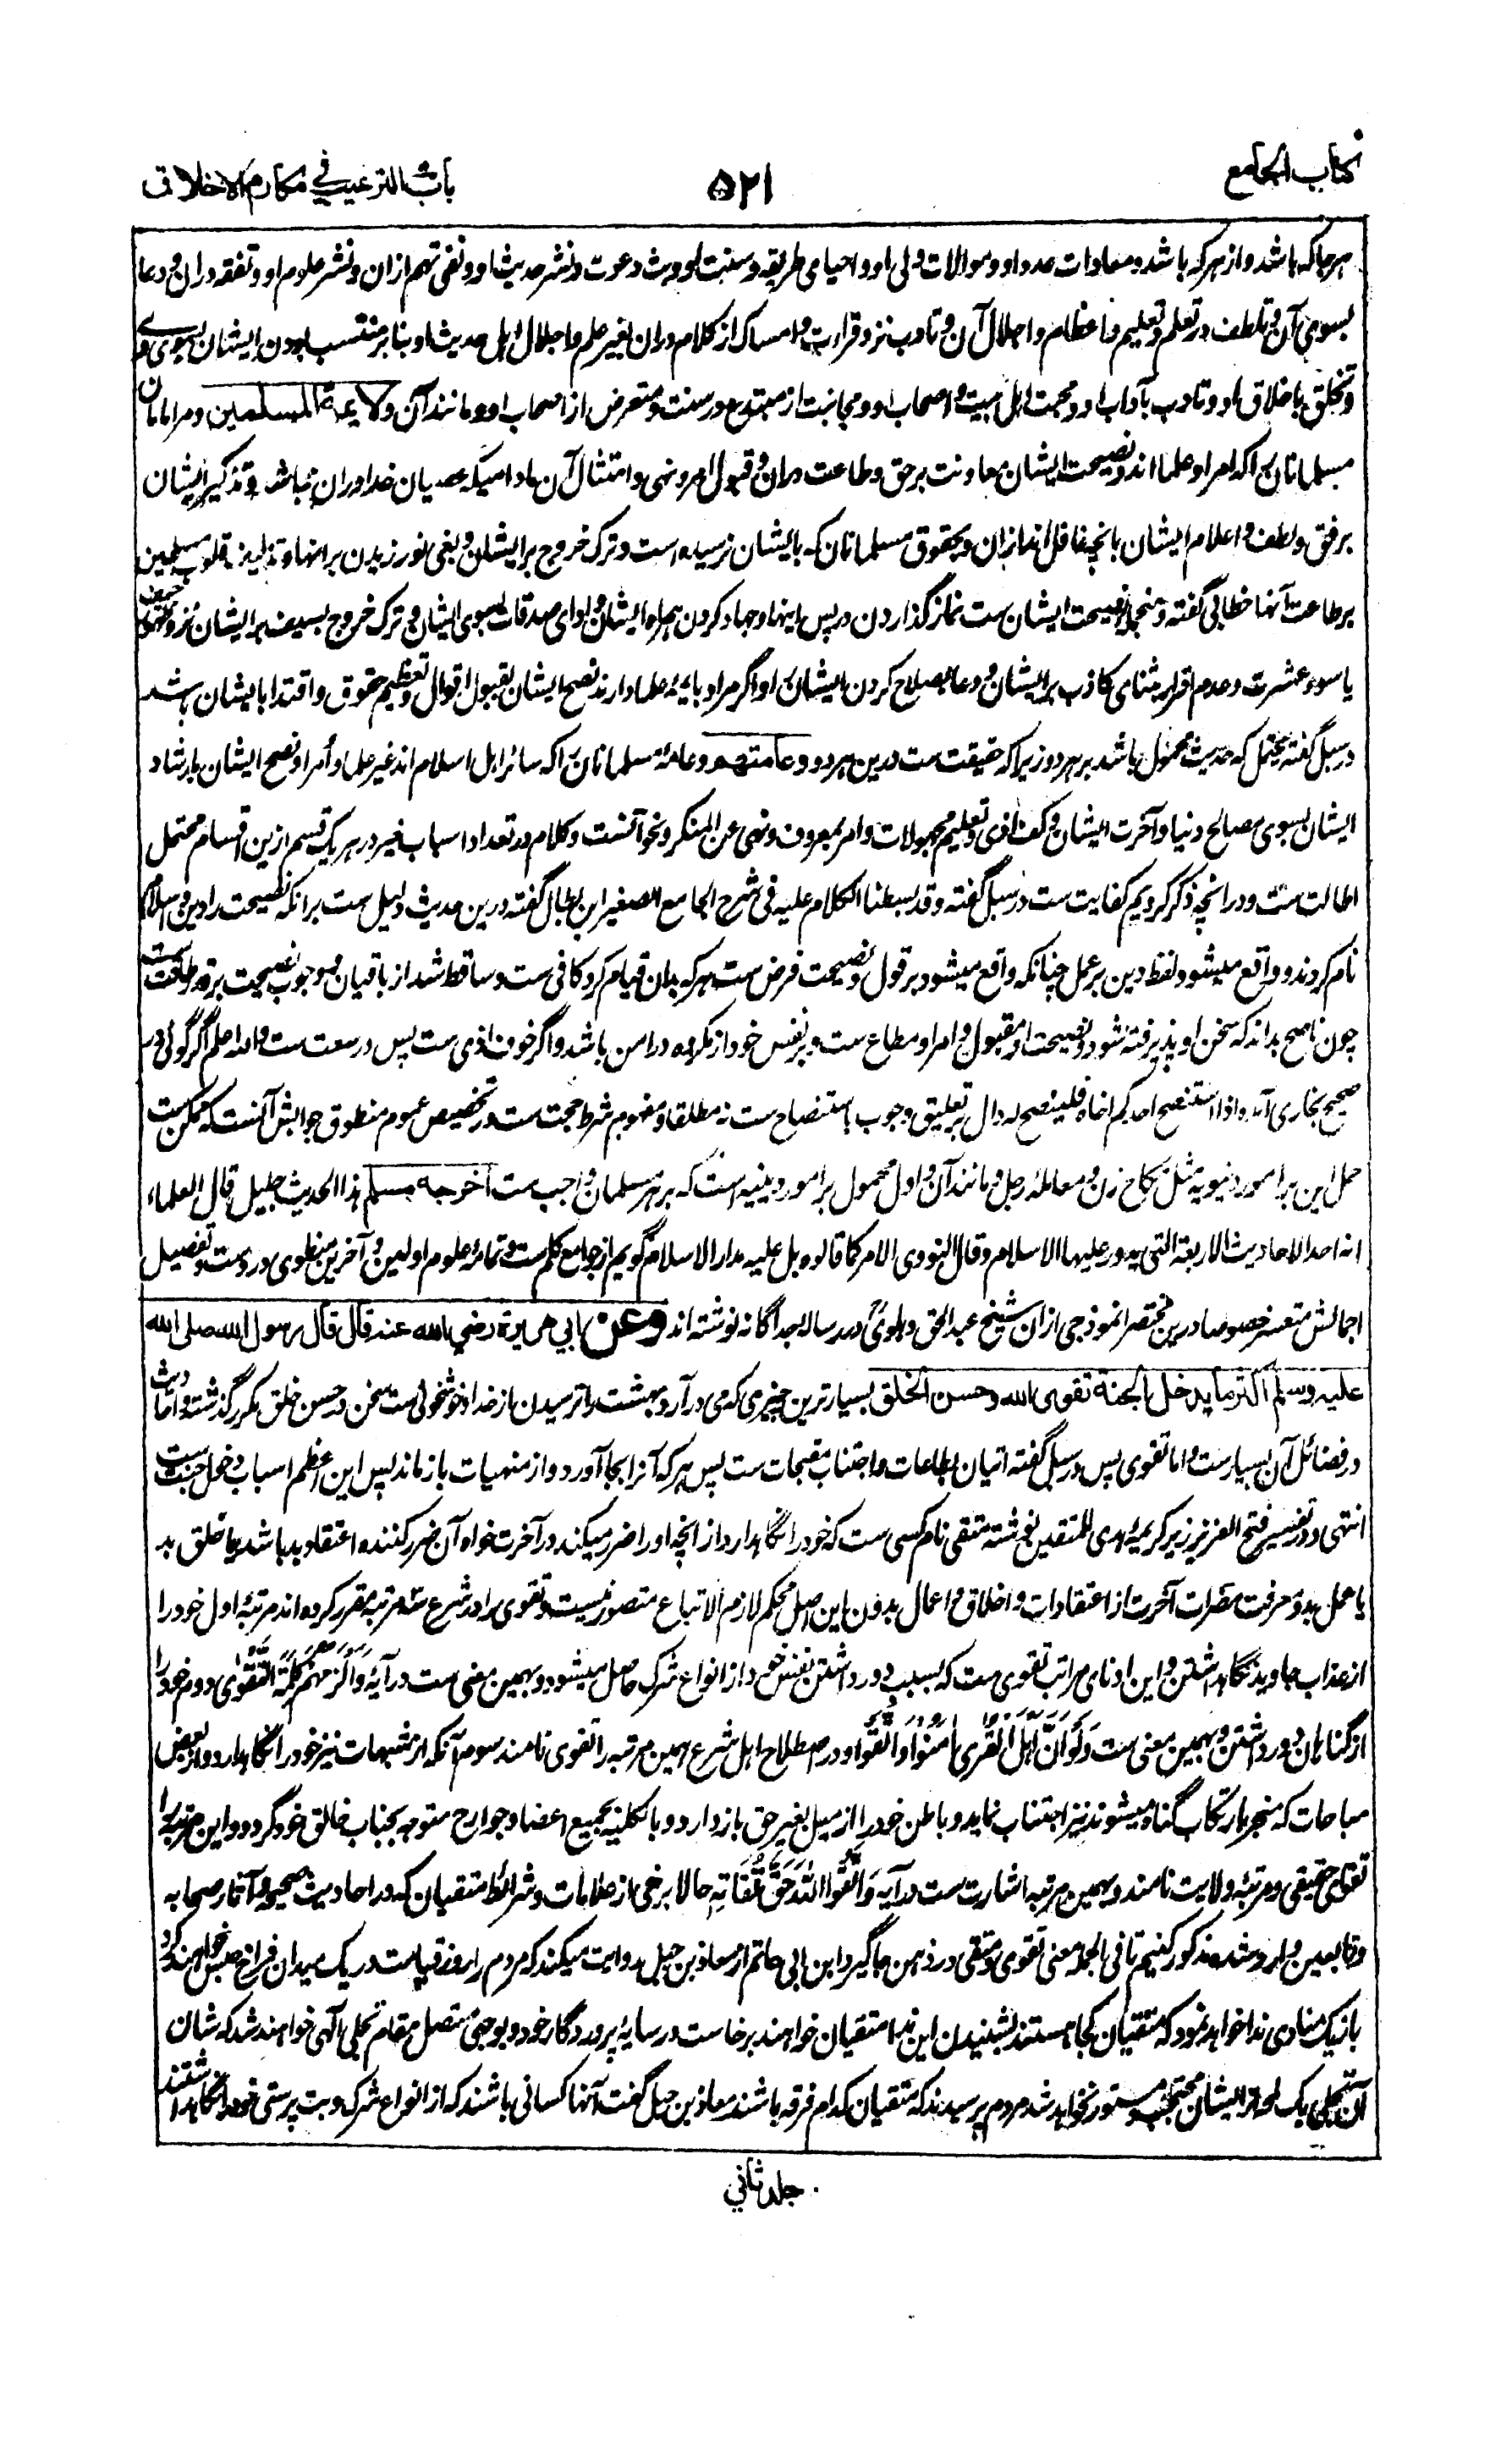 کتاب الجامع
۵۲۱
باب الترغیب فی مکارم الاخلاق
هرجا که باشد و از هر که باشد و معادات عدو او و موالات ولی او و احیای طریقه و سنت او و بث دعوت و نشر حدیث او و نفی تهم ازان و نشر علوم او و تفقه دران و دعا
بسوی آن و تلطف در تعلم و تعلیم و اعظام و اجلال آن و تادب نزد قراءت و امساک از کلام دران بغیر علم و اجلال اهل حدیث او بنابر منتسب بودن ایشان بسوی وے
و تخلق باخلاق او و تادب بآداب او و محبت اهل بیت و اصحاب او و مجانبت از مبتدع در سنت و متعرض از اصحاب او و مانند آن ولائمة المسلمین و مرامامان
مسلمانان را که امرا و علما اند و نصیحت ایشان معاونت بر حق و طاعت دران و قبول امر و نهی و امتثال آن مادامیکه عصیان خدا دران نباشد و تذکیر ایشان
برفق و لطف و اعلام ایشان بانچه غافل اند ازان و بحقوق مسلمانان که بایشان نرسیده است و ترک خروج بر ایشان و بغی نورزیدن بر انها و تالیف قلوب مسلمین
بر طاعت آنها خطابی گفته و منجمله نصیحت ایشان ست نماز گذاردن در پس اینها و جهاد کردن همراه ایشان و ادای صدقات بسوی ایشان و ترک خروج بسیف بر ایشان نزد ظهور حیف
یا سوء عشرت و عدم اقرار بثنای کاذب بر ایشان و دعا بصلاح کردن ایشان را و اگر مراد بائمه علما دارند نصح ایشان بقبول اقوال و تعظیم حقوق و اقتدا بایشان باشد
در سبل گفته یحتمل که حدیث محمول باشد بر هر دو زیرا که حقیقت ست درین هر دو وعامتهم و عامۀ مسلمانان را که سائر اهل اسلام اند غیر علما و امرا و نصح ایشان بارشاد
ایشان بسوی مصالح دنیا و آخرت ایشان و کف اذی و تعلیم مجهولات و امر بمعروف و نهی عن المنکر و نحو آنست و کلام در تعداد اسباب خیر در هر یک قسم ازین اقسام محتمل
اطالت ست و در انچه ذکر کردیم کفایت ست در سبل گفته وقد بسطنا الکلام علیه فی شرح الجامع الصغیر ابن بطال گفته درین حدیث دلیل ست بر انکه نصیحت را دین و اسلام
نام کردند و واقع میشود لفظ دین بر عمل چنانکه واقع میشود بر قول و نصیحت فرض ست هر که بدان قیام کرد کافی ست و ساقط شد از باقیان و وجوب نصیحت بر قدر طاقت ست
چون ناصح بداند که سخن او پذیرفته شود و نصیحت او مقبول و امر او مطاع ست و بر نفس خود از مکروه در امن باشد و اگر خوف اذی ست پس در سعت ست و الله اعلم اگر گوئی در
صحیح بخاری آمده واذا استنصح احدکم اخاه فلینصح له دال بر تعلیق وجوب باستنصاح ست نه مطلقا و مفهوم شرط حجت ست در تخصیص عموم منطوق جوابش آنست که ممکن ست
حمل این بر امور دنیویه مثل نکاح زن و معاملۀ رجل و مانند آن و اول محمول بر امور دینیه است که بر هر مسلمان واجب ست اخرجه مسلم هذا الحدیث جلیل قال العلماء
انه احد الاحادیث الاربعة التی یدور علیها الاسلام وقال النووی الامر کما قالوه بل علیه مدار الاسلام گویم از جوامع کلم ست و تمامۀ علوم اولین و آخرین منطوی در وست و تفصیل
اجمالش متعسر خصوصا درین مختصر انموذجی ازان شیخ عبدالحق دهلوی در رساله جداگانه نوشته اند وعن ابی هریرة رضی الله عنه قال قال رسول الله صلی الله
علیه وسلم اکثر ما یدخل الجنة تقوی الله وحسن الخلق بسیارترین چیزی که می درآرد بهشت را ترسیدن از خدا و خوشخوئی ست سخن در حسن خلق مکرر گذشته و احادیث
در فضائل آن بسیارست و اما تقوی پس در سبل گفته اتیان بطاعات و اجتناب مقبحات ست پس هر که آنرا بجا آورد و از منهیات باز ماند پس این اعظم اسباب دخول جنت ست
انتهی و در تفسیر فتح العزیز زیر کریمه هدی للمتقین نوشته متقی نام کسی ست که خود را نگاهدارد از انچه او را ضرر میکند در آخرت خواه آن ضرر کننده اعتقاد بد باشد یا خلق بد
یا عمل بد و معرفت مضرات آخرت از اعتقادات و اخلاق و اعمال بدون این اصل محکم لازم الاتباع متصور نیست و تقوی را در شرع سه مرتبه مقرر کرده اند مرتبۀ اول خود را
از عذاب جاوید نگاهداشتن و این ادنای مراتب تقوی ست که بسبب دور داشتن نفس خود از انواع شرک حاصل میشود و بهمین معنی ست در آیۀ وَاَلْزَمَهُمْ کَلِمَةَ التَّقْوٰی دوم خود را
از گناهان دور داشتن و بهمین معنی ست وَلَوْ اَنَّ اَهْلَ الْقُرٰی اٰمَنُوْا وَاتَّقَوْا و در اصطلاح اهل شرع همین مرتبه را تقوی نامند سوم آنکه از مشتبهات نیز خود را نگاهدارد و از بعض
مباحات که منجر بارتکاب گناه میشوند نیز اجتناب نماید و باطن خود را از میل بغیر حق باز دارد و بالکلیه بجمیع اعضا و جوارح متوجه بجناب خالق خود گردد و این مرتبه را
تقوای حقیقی و مرتبۀ ولایت نامند و بهمین مرتبه اشارت ست در آیه وَاتَّقُوا اللّٰهَ حَقَّ تُقَاتِهٖ حالا برخی از علامات و شرائط متقیان که در احادیث صحیحه و آثار صحابه
و تابعین وارد شده مذکور کنیم تا فی الجمله معنی تقوی و متقی در ذهن جاگیرد ابن ابی حاتم از معاذ بن جبل روایت میکند که مردم را روز قیامت در یک میدان فراخ حبس خواهند کرد
بانیک منادی ندا خواهد نمود که متقیان کجا هستند بشنیدن این ندا متقیان خواهند برخاست در سایۀ پروردگار خود و بوجهی متصل مقام تجلی الهی خواهند شد که شان
آن تجلی یک لمحه از ایشان محتجب و مستور نخواهد شد مردم پرسیدند که متقیان کدام فرقه باشند معاذ بن جبل گفت آنها کسانی باشند که از انواع شرک و بت پرستی خود را نگاهداشتند
جلد ثانی